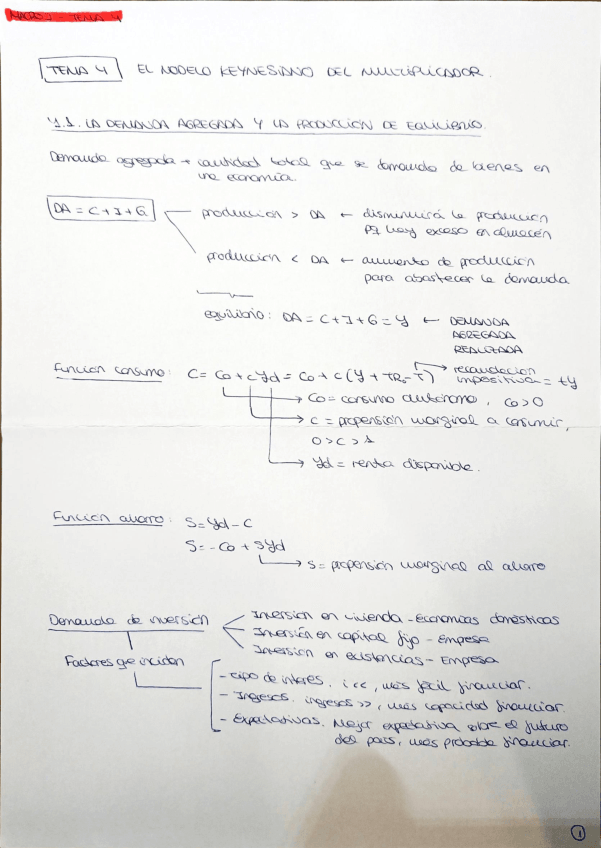 MACRO 2 TEMA 4
TEMA 4 EL MODELO KEYNESIANO DEL MULTIPLICADOR.
4.1. LA DEMANDA AGREGADA Y LA PRODUCCIÓN DE EQUILIBRIO.
Demanda agregada → cantidad total que se demanda de bienes en
una economía.
DA = C + I + G
produccion > DA ← disminuirá la produccion
pq hay exceso en almacén
produccion < DA ← aumento de produccion
para abastecer la demanda
equilibrio: DA = C + I + G = Y ← DEMANDA
AGREGADA
REALIZADA
Función consumo: C = Co + cYd = Co + c(Y + TRo - T) → recaudacion
impositiva = tY
→ Co = consumo autónomo, Co > 0
→ c = propensión marginal a consumir,
0 > c > 1
→ Yd = renta disponible.
Función ahorro: S = Yd - C
S = -Co + SYd
→ S = propensión marginal al ahorro
Demanda de inversión
Inversion en vivienda - economías domésticas
Inversión en capital fijo - Empresa
Inversion en existencias - Empresa
Factores qe inciden
- tipo de interés. i <<, más fácil financiar.
- Ingresos. ingresos >>, más capacidad financiar.
- Expectativas. Mejor expectativa sobre el futuro
del pais, más probable financiar.
1